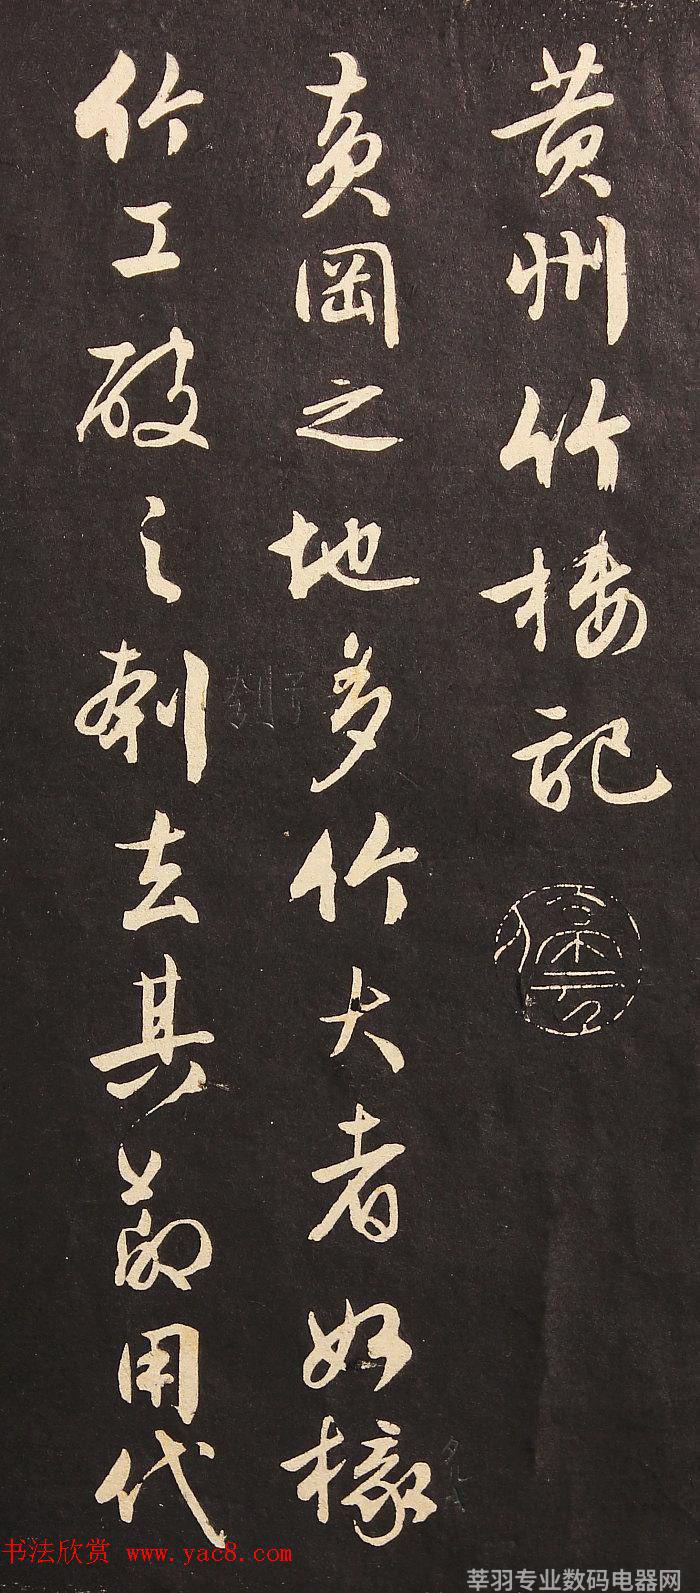 黄州竹楼記
黄岡之地多竹大者如椽
竹工破之刳去其節用代
书法欣赏 www.yac8.com
莘羽专业数码电器网